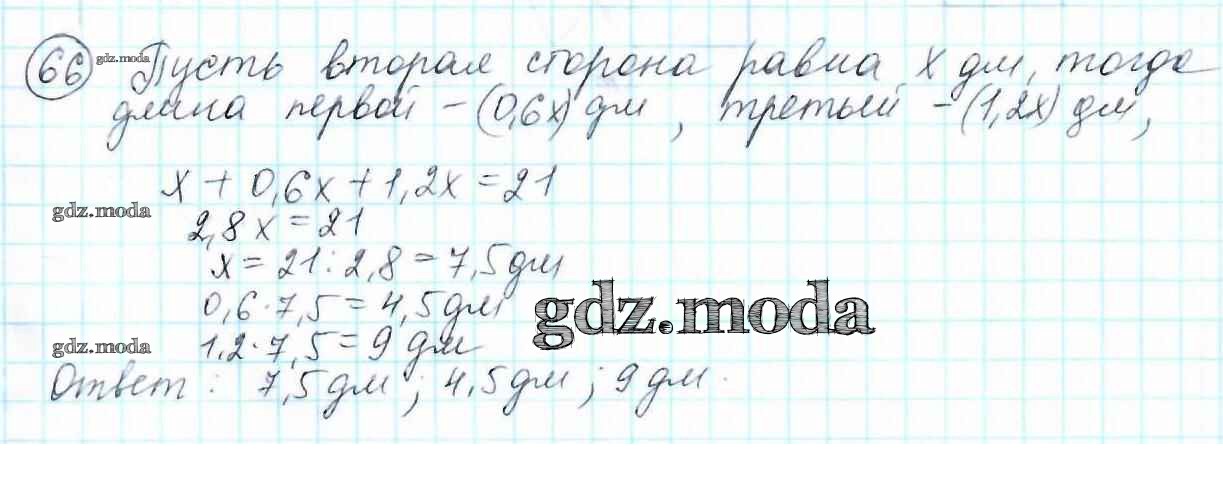 66 gdz.moda Пусть вторая сторона равна x дм, тогда
длина первой - (0,6x) дм, третьей - (1,2x) дм,
x + 0,6x + 1,2x = 21
gdz.moda
2,8x = 21
x = 21 : 2,8 = 7,5 дм
0,6 · 7,5 = 4,5 дм
gdz.moda
gdz.moda
1,2 · 7,5 = 9 дм
Ответ : 7,5 дм ; 4,5 дм ; 9 дм.